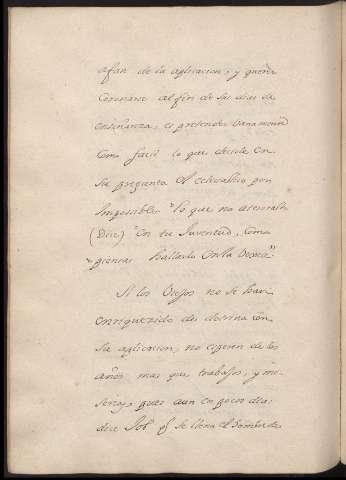 afan de la aplicacion, y querer
Coronarse al fin de sus dias de
enseñanza, es pretender vanamente
Como facil lo que decide en
Su pregunta el eclesiastico por
Impossible: "lo que no atesoraste
(Dice) "en tu Juventud, Como
"piensas hallarlo en la Vejez?"
Si los Viejos no se han
enriquecido de dotrina con
Su aplicacion, no cogeran de los
años mas que trabajos, y mi-
serias, pues aun en pocos dias
dice Job q̃ se llena el hombre de